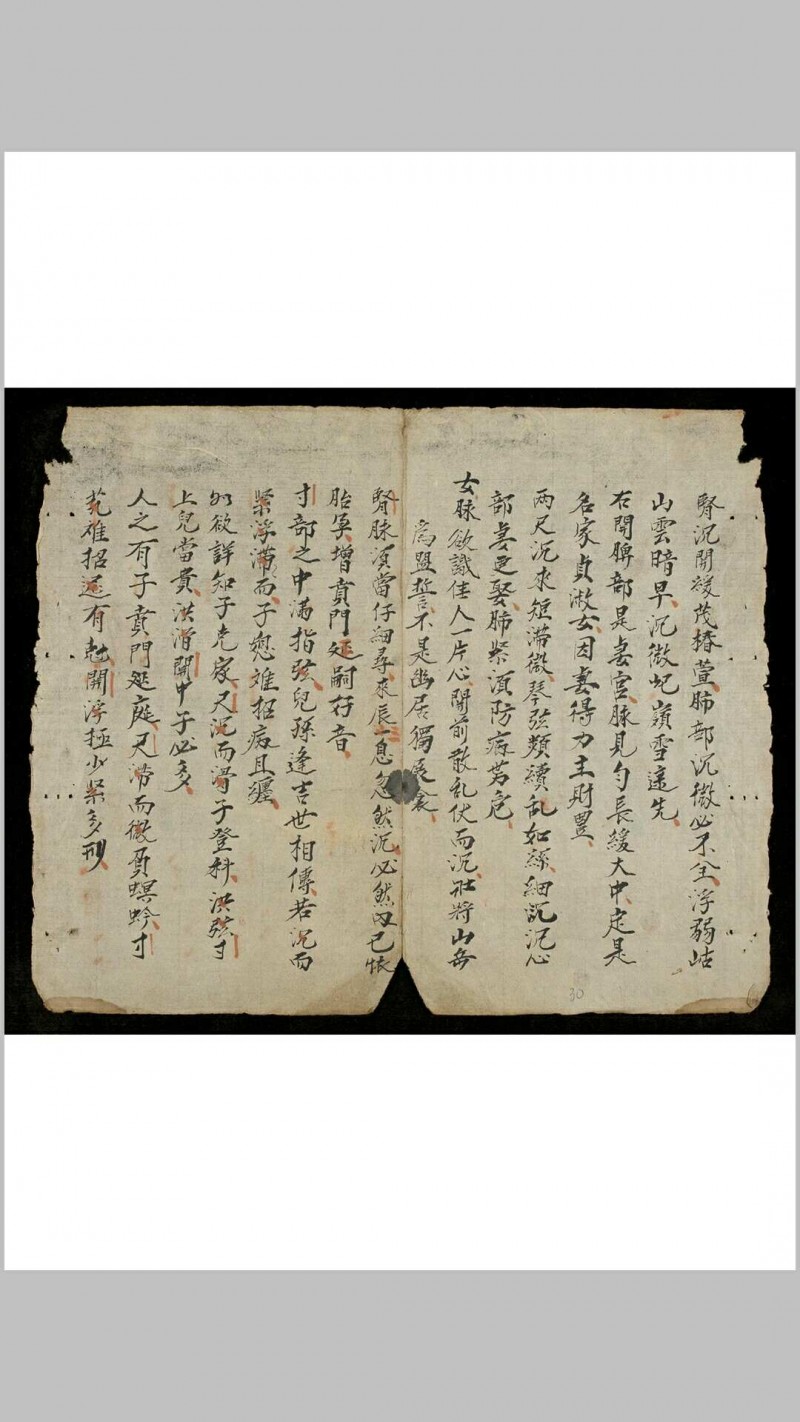 腎沉開緩茂椿萱肺部沉微必不全浮弱岵
山雲暗早沉微屺嶺雪途先
右關脾部是妻宮脉見勻長緩大中定是
名家貞淑女因妻得力主財豊
兩尺沉來短滯微琴弦頻續乱如絲細沉沉心
部妻更娶肺緊須防病苦危
女脉欲識佳人一片心關前散乱伏而沉壮將山岳
為盟誓不是幽居獨展衾
腎脉須當仔細尋來辰一息忽然沉必然因已懷
胎孕增賁門延嗣好音
寸部之中滿指弦兒孫逢吉世相傳若沉而
緊浮滯而子愁难招病且纏
如欲詳知子克家尺沉而滑子登科洪弦寸
上兒當貴洪滑關中子必多
人之有子賁門延庭尺滯而微負螟蛉寸
芤难招還有尅關浮極少緊多刑
30